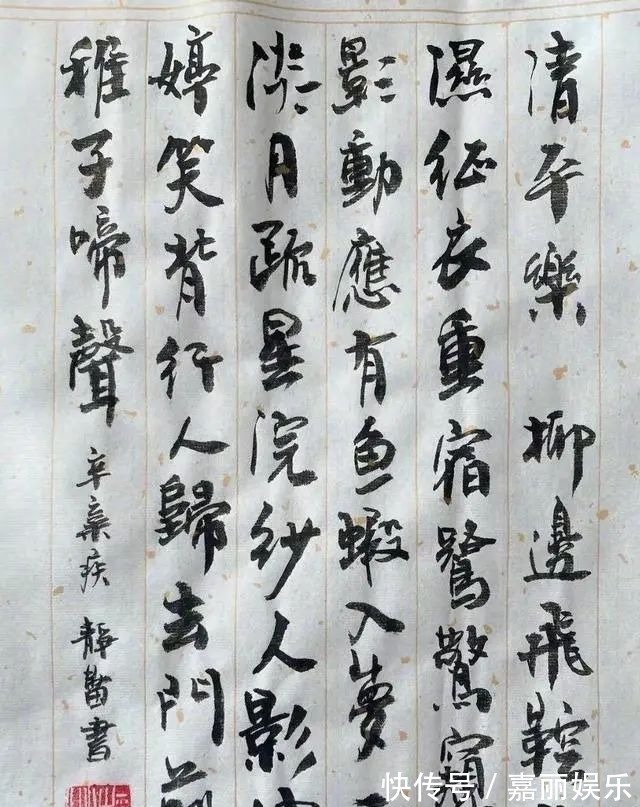 清平樂 柳邊飛鞚
濕征衣重宿鷺驚窺
影動應有鱼蝦入夢
淡月疏星浣紗人影
婷笑背行人歸去門前
稚子啼聲 辛棄疾 靜書
快传号／嘉丽娱乐